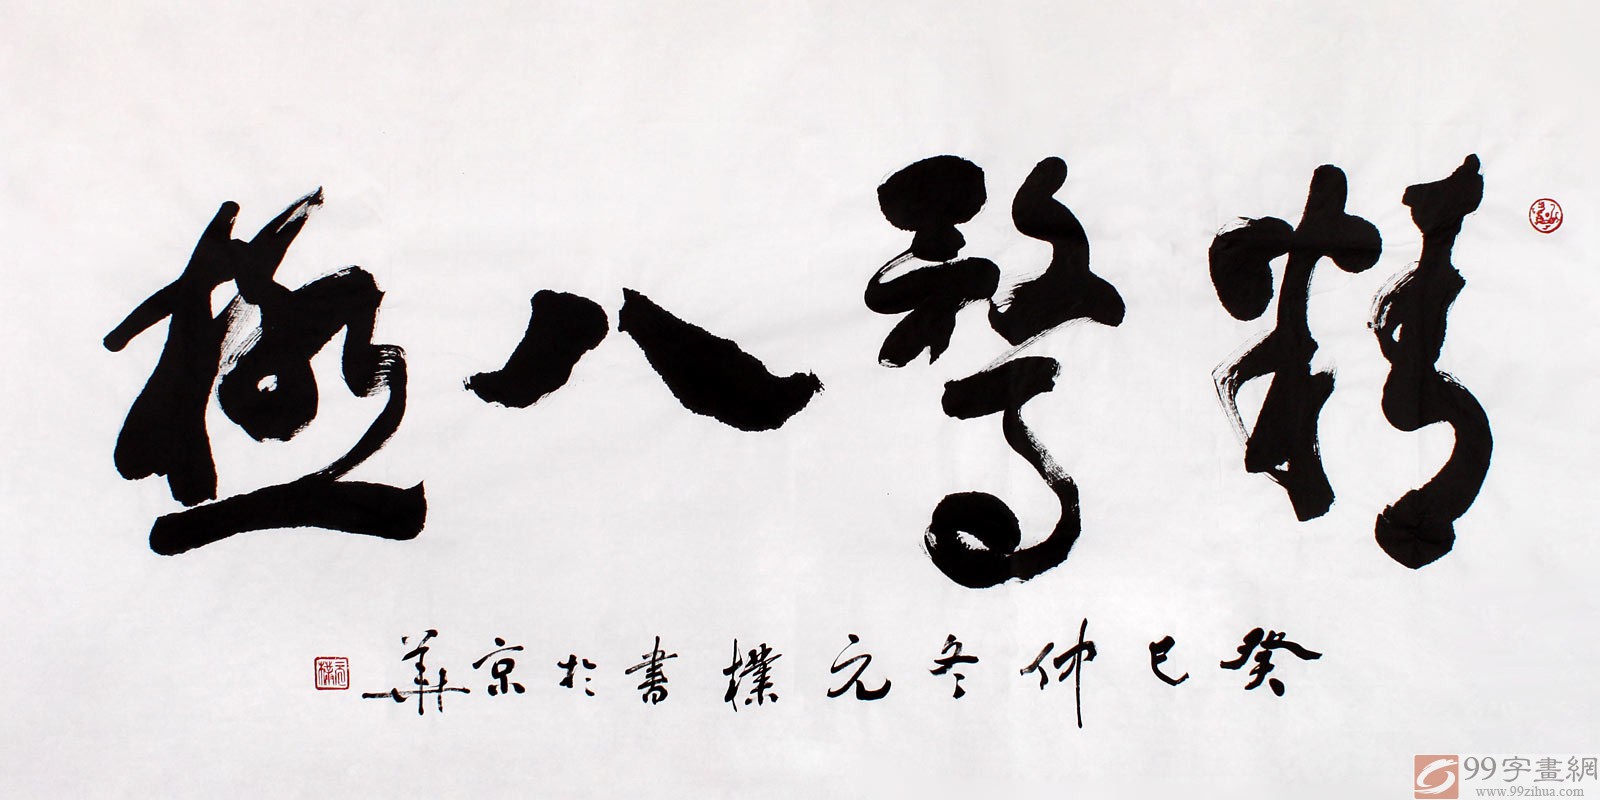 精骛八极
癸巳仲冬元樸書於京華
元樸
99字畫網
www.99zihua.com